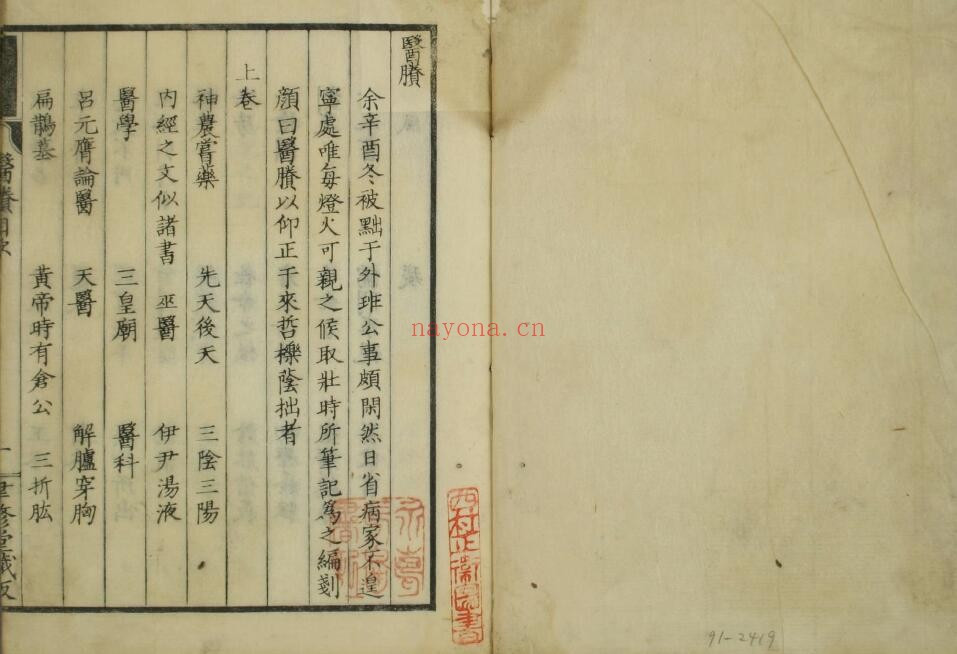 醫賸
余辛酉冬被黜于外班公事頗閑然日省病家不遑
寧處唯每燈火可親之候取壯時所筆記為之編剗
顏曰醫賸以仰正于來哲櫟蔭拙者
上卷
神農嘗藥 先天後天 三陰三陽
內經之文似諸書 巫醫 伊尹湯液
醫學 三皇廟 醫科
呂元膺論醫 天醫 解臚穿胸
扁鵲墓 黃帝時有倉公 三折肱
醫賸目次
一
聿修堂藏版
西村正衛圖書
nayona.cn
91-2419